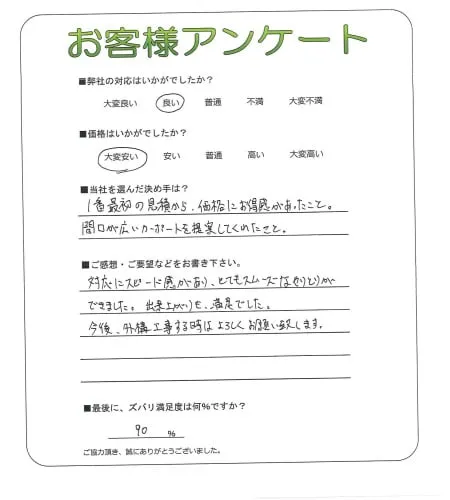 お客様アンケート
■弊社の対応はいかがでしたか？
大変良い 良い 普通 不満 大変不満
■価格はいかがでしたか？
大変安い 安い 普通 高い 大変高い
■当社を選んだ決め手は？
1番最初の見積から、価格にお得感があったこと。
間口が広いカーポートを提案してくれたこと。
■ご感想・ご要望などをお書き下さい。
対応にスピード感があり、とてもスムーズなやりとりが
できました。出来上がりも、満足でした。
今後、外構工事する時はよろしくお願い致します。
■最後に、ズバリ満足度は何％ですか？
90 ％
ご協力頂き、誠にありがとうございました。